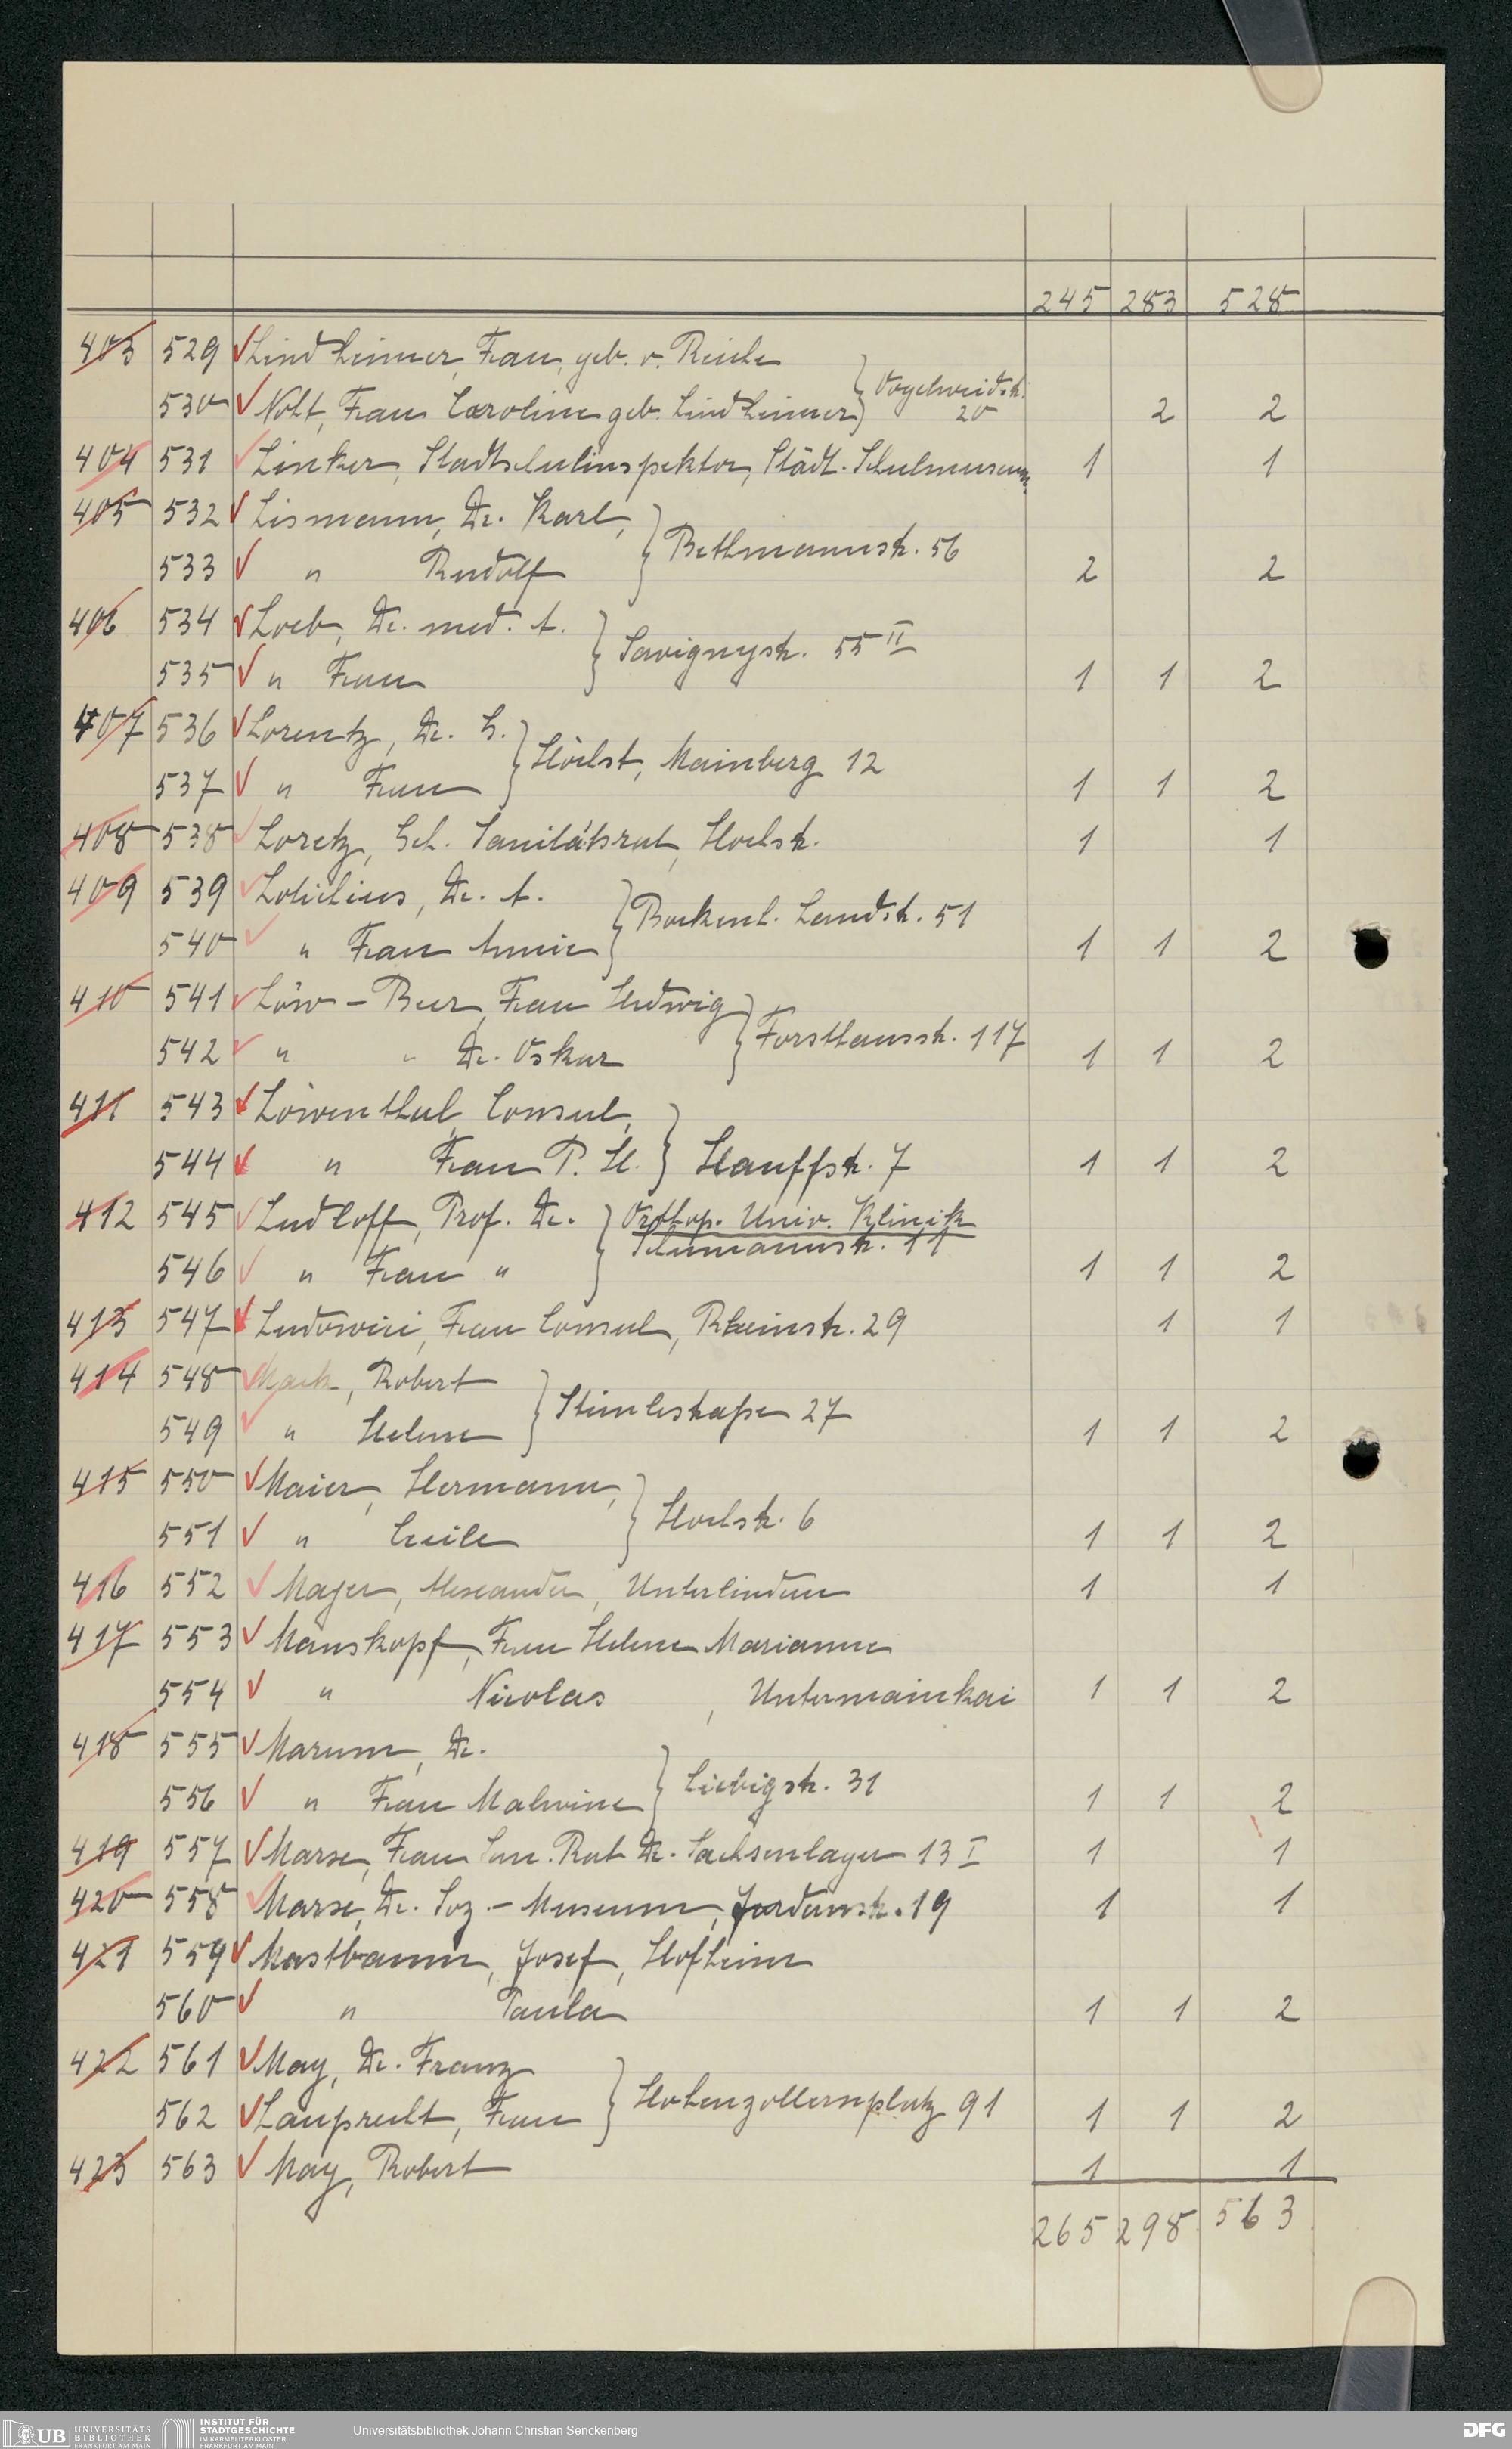 245 283 528
403 529 Lindheimer, Frau, geb. v. Reiche
530 Nolt, Frau Caroline geb. Lindheimer } Vogelweidstr. 20 2 2
404 531 Linker, Stadtschulinspektor, Städt. Schulmuseum 1 1
405 532 Lismann, Dr. Karl,
533 " Rudolf } Bethmannstr. 56 2 2
406 534 Loeb, Dr. med. A.
535 " Frau } Savignystr. 55 II 1 1 2
407 536 Lorentz, Dr. G.
537 " Frau } Höchst, Mainberg 12 1 1 2
408 538 Loretz, Geh. Sanitätsrat, Hochstr. 1 1
409 539 Lotichius, Dr. A.
540 " Frau Annie } Bockenh. Landstr. 51 1 1 2
410 541 Löw-Beer, Frau Hedwig
542 " " Dr. Oskar } Forsthausstr. 117 1 1 2
411 543 Löwenthal, Consul,
544 " Frau P. H. } Hauffstr. 7 1 1 2
412 545 Ludloff, Prof. Dr. } Orthop. Univ. Klinik
Schumannstr. 11
546 " Frau " 1 1 2
413 547 Ludowici, Frau Consul, Rheinstr. 29 1 1
414 548 Mack, Robert
549 " Helene } Stimlestraße 27 1 1 2
415 550 Maier, Hermann,
551 " Cecile } Hochstr. 6 1 1 2
416 552 Majer, Alexander, Unterlindau 1 1
417 553 Manskopf, Frau Helene Marianne
554 " Nicolas , Untermainkai 1 1 2
418 555 Marum, Dr.
556 " Frau Malwine } Liebigstr. 31 1 1 2
419 557 Marse, Frau San. Rat Dr. Sachsenlager 13 I 1 1
420 558 Marse, Dr. Soz.-Museum, Jordanstr. 19 1 1
421 559 Mastbaum, Josef, Hofheim
560 " Paula 1 1 2
422 561 May, Dr. Franz
562 Lauprecht, Frau } Hohenzollernplatz 91 1 1 2
423 563 May, Robert 1 1
265 298 563
UB UNIVERSITÄTS BIBLIOTHEK FRANKFURT AM MAIN
INSTITUT FÜR STADTGESCHICHTE IM KARMELITERKLOSTER FRANKFURT AM MAIN
Universitätsbibliothek Johann Christian Senckenberg
DFG